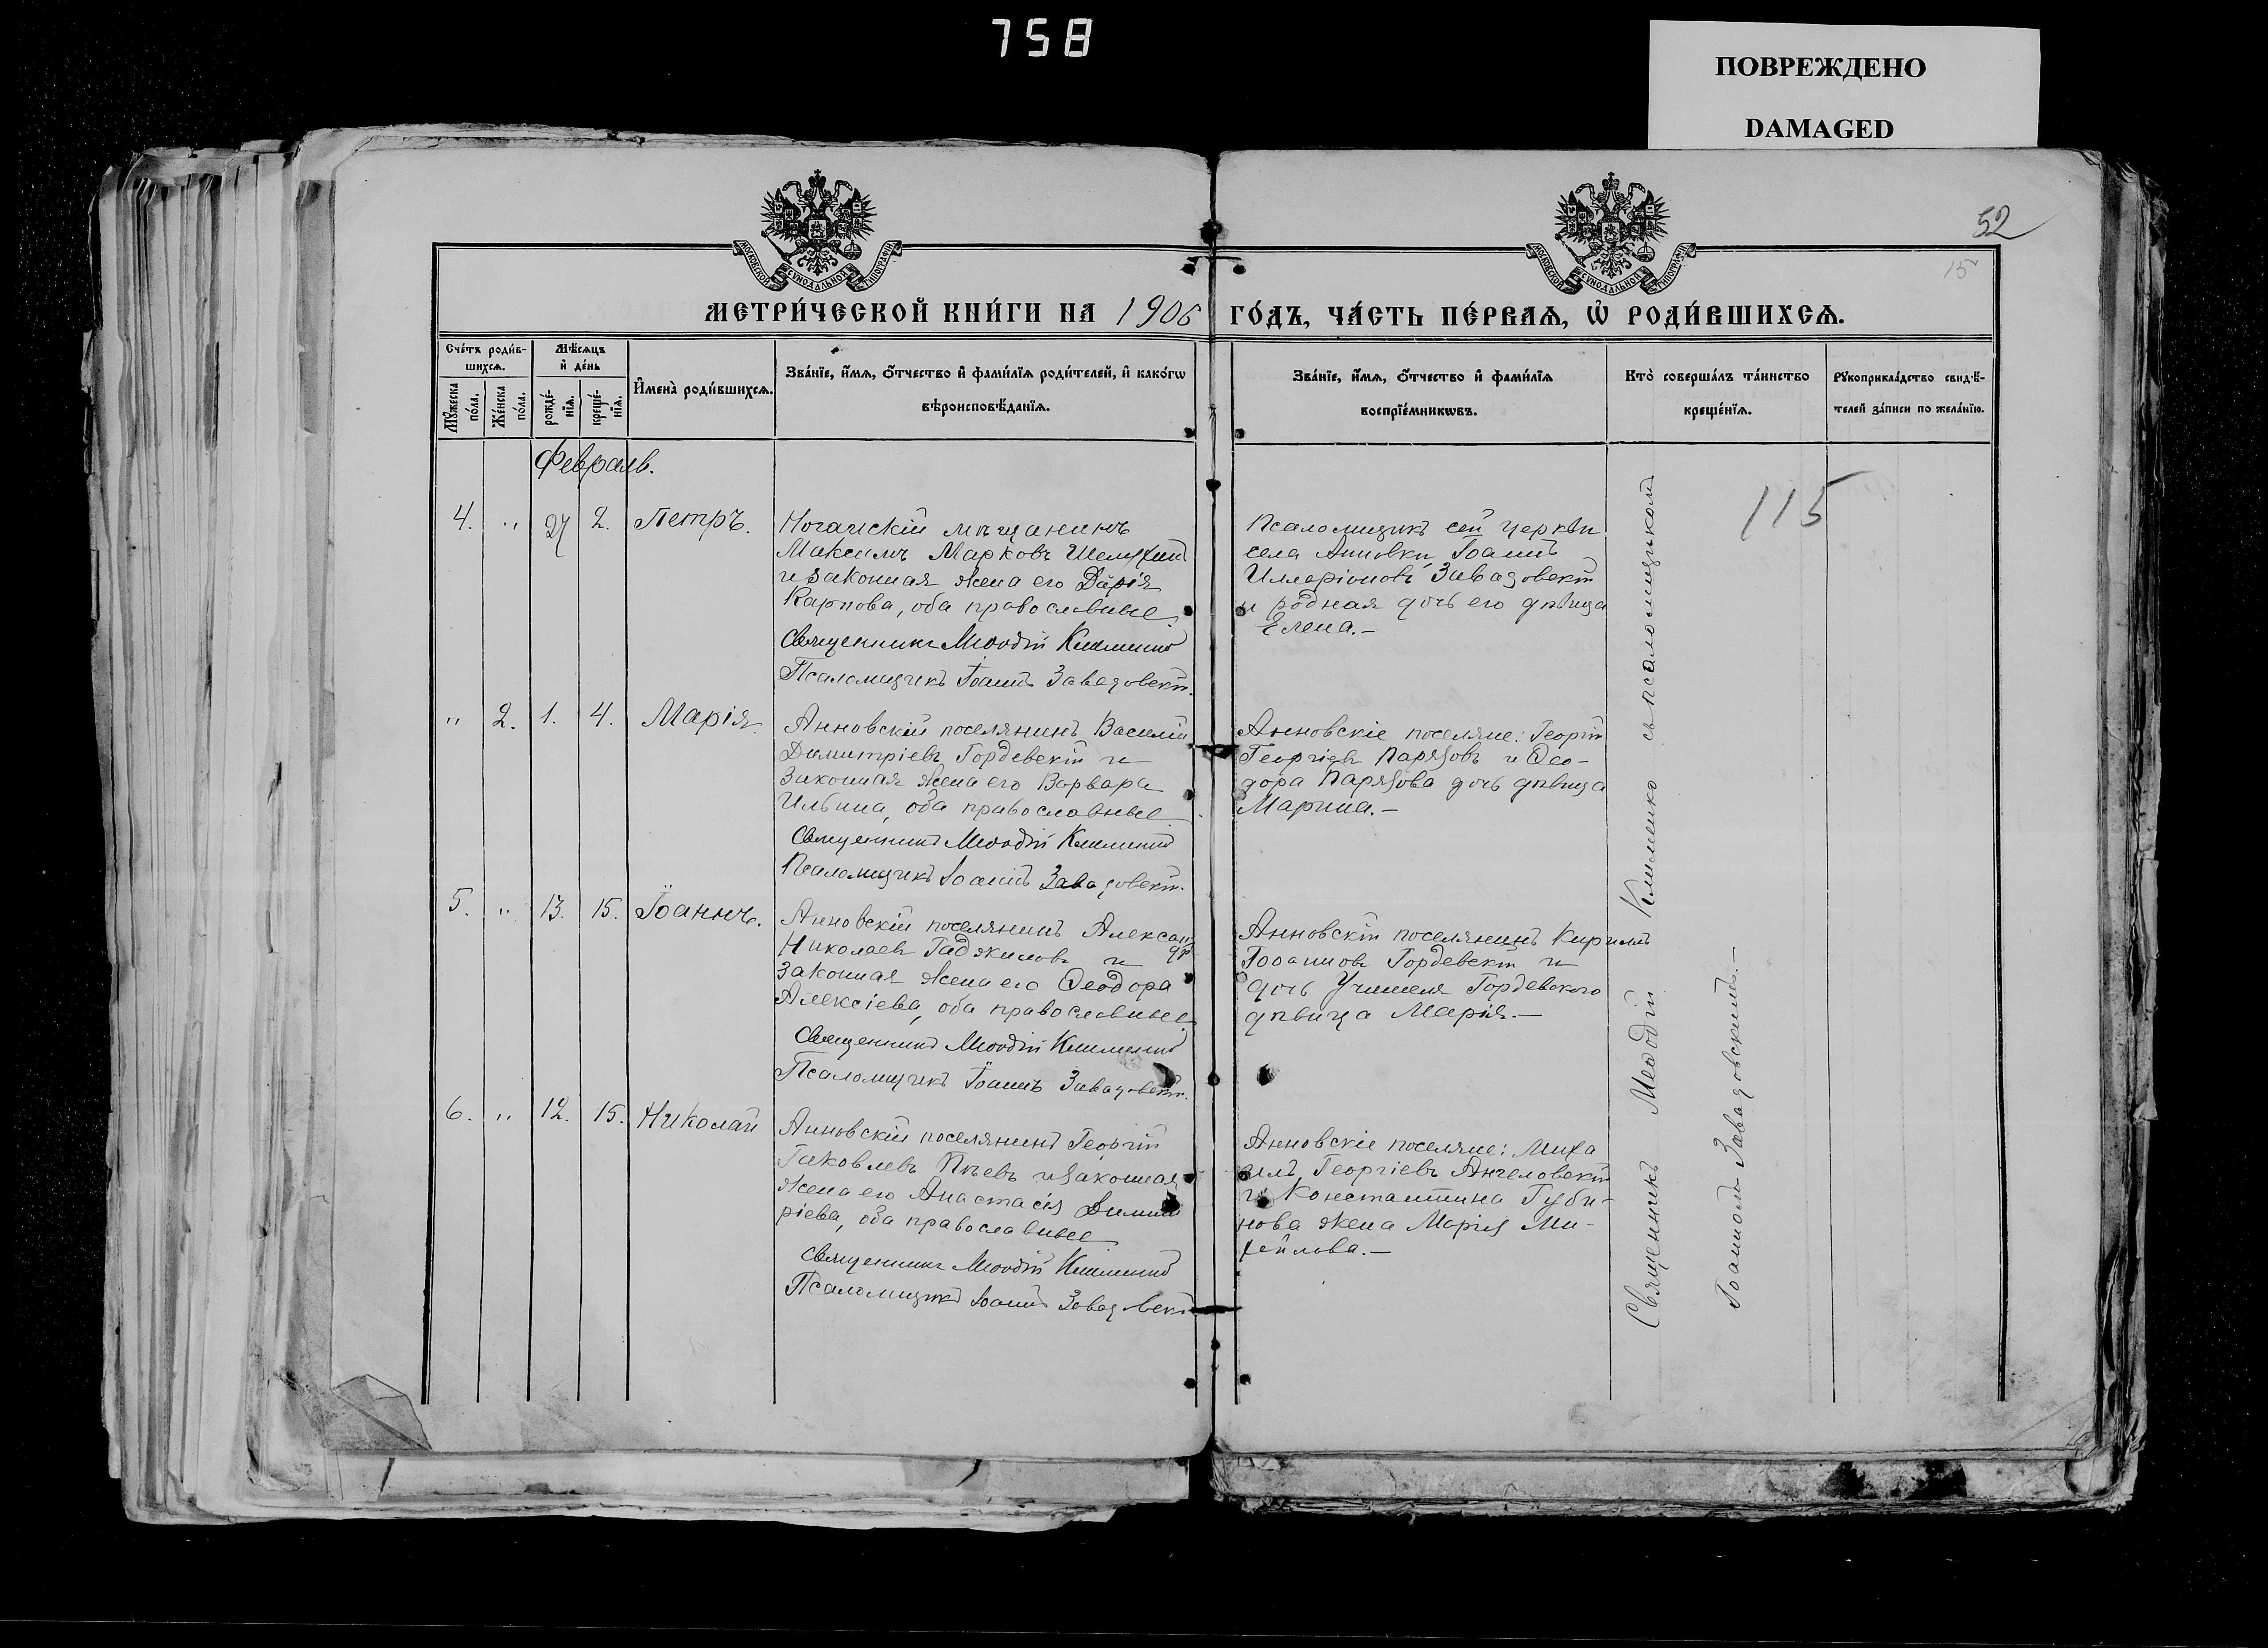 758
ПОВРЕЖДЕНО
DAMAGED
52
15
МОСКОВСКОЙ СѴНОДАЛЬНОЙ ТИПОГРАФІИ
МОСКОВСКОЙ СѴНОДАЛЬНОЙ ТИПОГРАФІИ
МЕТРИ́ЧЕСКОЙ КНИ́ГИ НА 1906 ГО́ДЪ, ЧА́СТЬ ПЕ́РВАѦ, Ѡ҆ РОДИ́ВШИХСѦ.
Сче́тъ роди́в-
шихсѧ.
Мꙋ́жеска по́ла.
Же́нска по́ла.
Мѣ́сѧцъ
и҆ де́нь
рожде́-
нїѧ.
креще́-
нїѧ.
И҆мена̀ роди́вшихсѧ.
Зва́нїе, и҆́мѧ, ѻ҆́тчество и҆ фами́лїѧ роди́телей, и҆ како́гѡ
вѣроисповѣ́данїѧ.
Зва́нїе, и҆́мѧ, ѻ҆́тчество и҆ фами́лїѧ
воспрїе́мникѡвъ.
Кто̀ соверша́лъ та́инство
креще́нїѧ.
Рꙋкоприкла́дство свидѣ́-
телей за́писи по жела́нїю.
Февраль.
115
4. " 27 2. Петръ.
Ногайскій мѣщанинъ
Максимъ Марковъ
и законная жена его Дарія
Карпова, оба православные
Священникъ Меѳодій Клименко
Псаломщикъ Іоаннъ Завадовскій.
Псаломщикъ сей церкви
села Анновки Іоаннъ
Илларіоновъ Завадовскій
и родная дочь его дѣвица
Елена.—
" 2. 1. 4. Марія
Анновскій поселянинъ Василій
Димитріевъ Гордевскій и
законная жена его Варвара
Ильина, оба православные
Священникъ Меѳодій Клименко
Псаломщикъ Іоаннъ Завадовскій.
Анновскіе поселяне: Георгій
Георгіевъ Парязовъ и Ѳео-
дора Парязова дочь дѣвица
Марина.—
5. " 13. 15. Іоаннъ.
Анновскій поселянинъ Александръ
Николаевъ Гаджиловъ и
законная жена его Ѳеодора
Алексіева, оба православные
Священникъ Меѳодій Клименко
Псаломщикъ Іоаннъ Завадовскій.
Анновскій поселянинъ Кириллъ
Іоанновъ Гордевскій и
дочь Учителя Гордевского
дѣвица Марія.—
6. " 12. 15. Николай
Анновскій поселянинъ Георгій
Іаковлевъ и законная
жена его Анастасія Димит
ріева, оба православные
Священникъ Меѳодій Клименко
Псаломщикъ Іоаннъ Завадовскій
Анновскіе поселяне: Миха
илъ Георгіевъ Ангеловскій
и Константина Губи-
нова жена Марія Ми-
хайлова.—
Священникъ Меѳодій Клименко съ псаломщикомъ
Іоанномъ Завадовскимъ.—